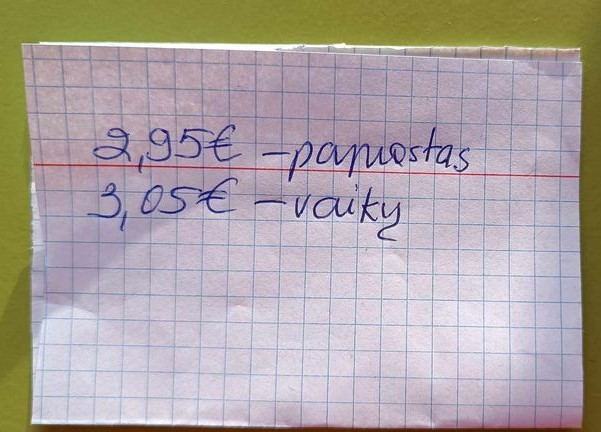 2,95€ – paprastas
3,05€ – vaikų